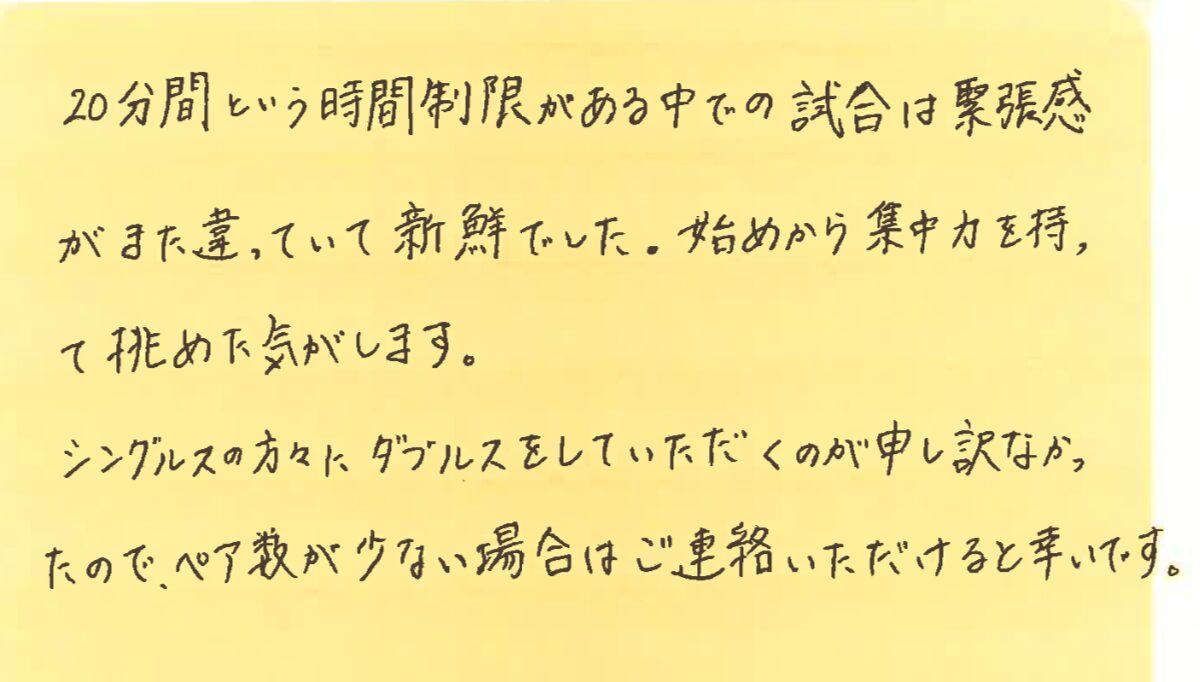 20分間という時間制限がある中での試合は緊張感
がまた違っていて新鮮でした。始めから集中力を持っ
て挑めた気がします。
シングルスの方々にダブルスをしていただくのが申し訳なかっ
たので、ペア数が少ない場合はご連絡いただけると幸いです。